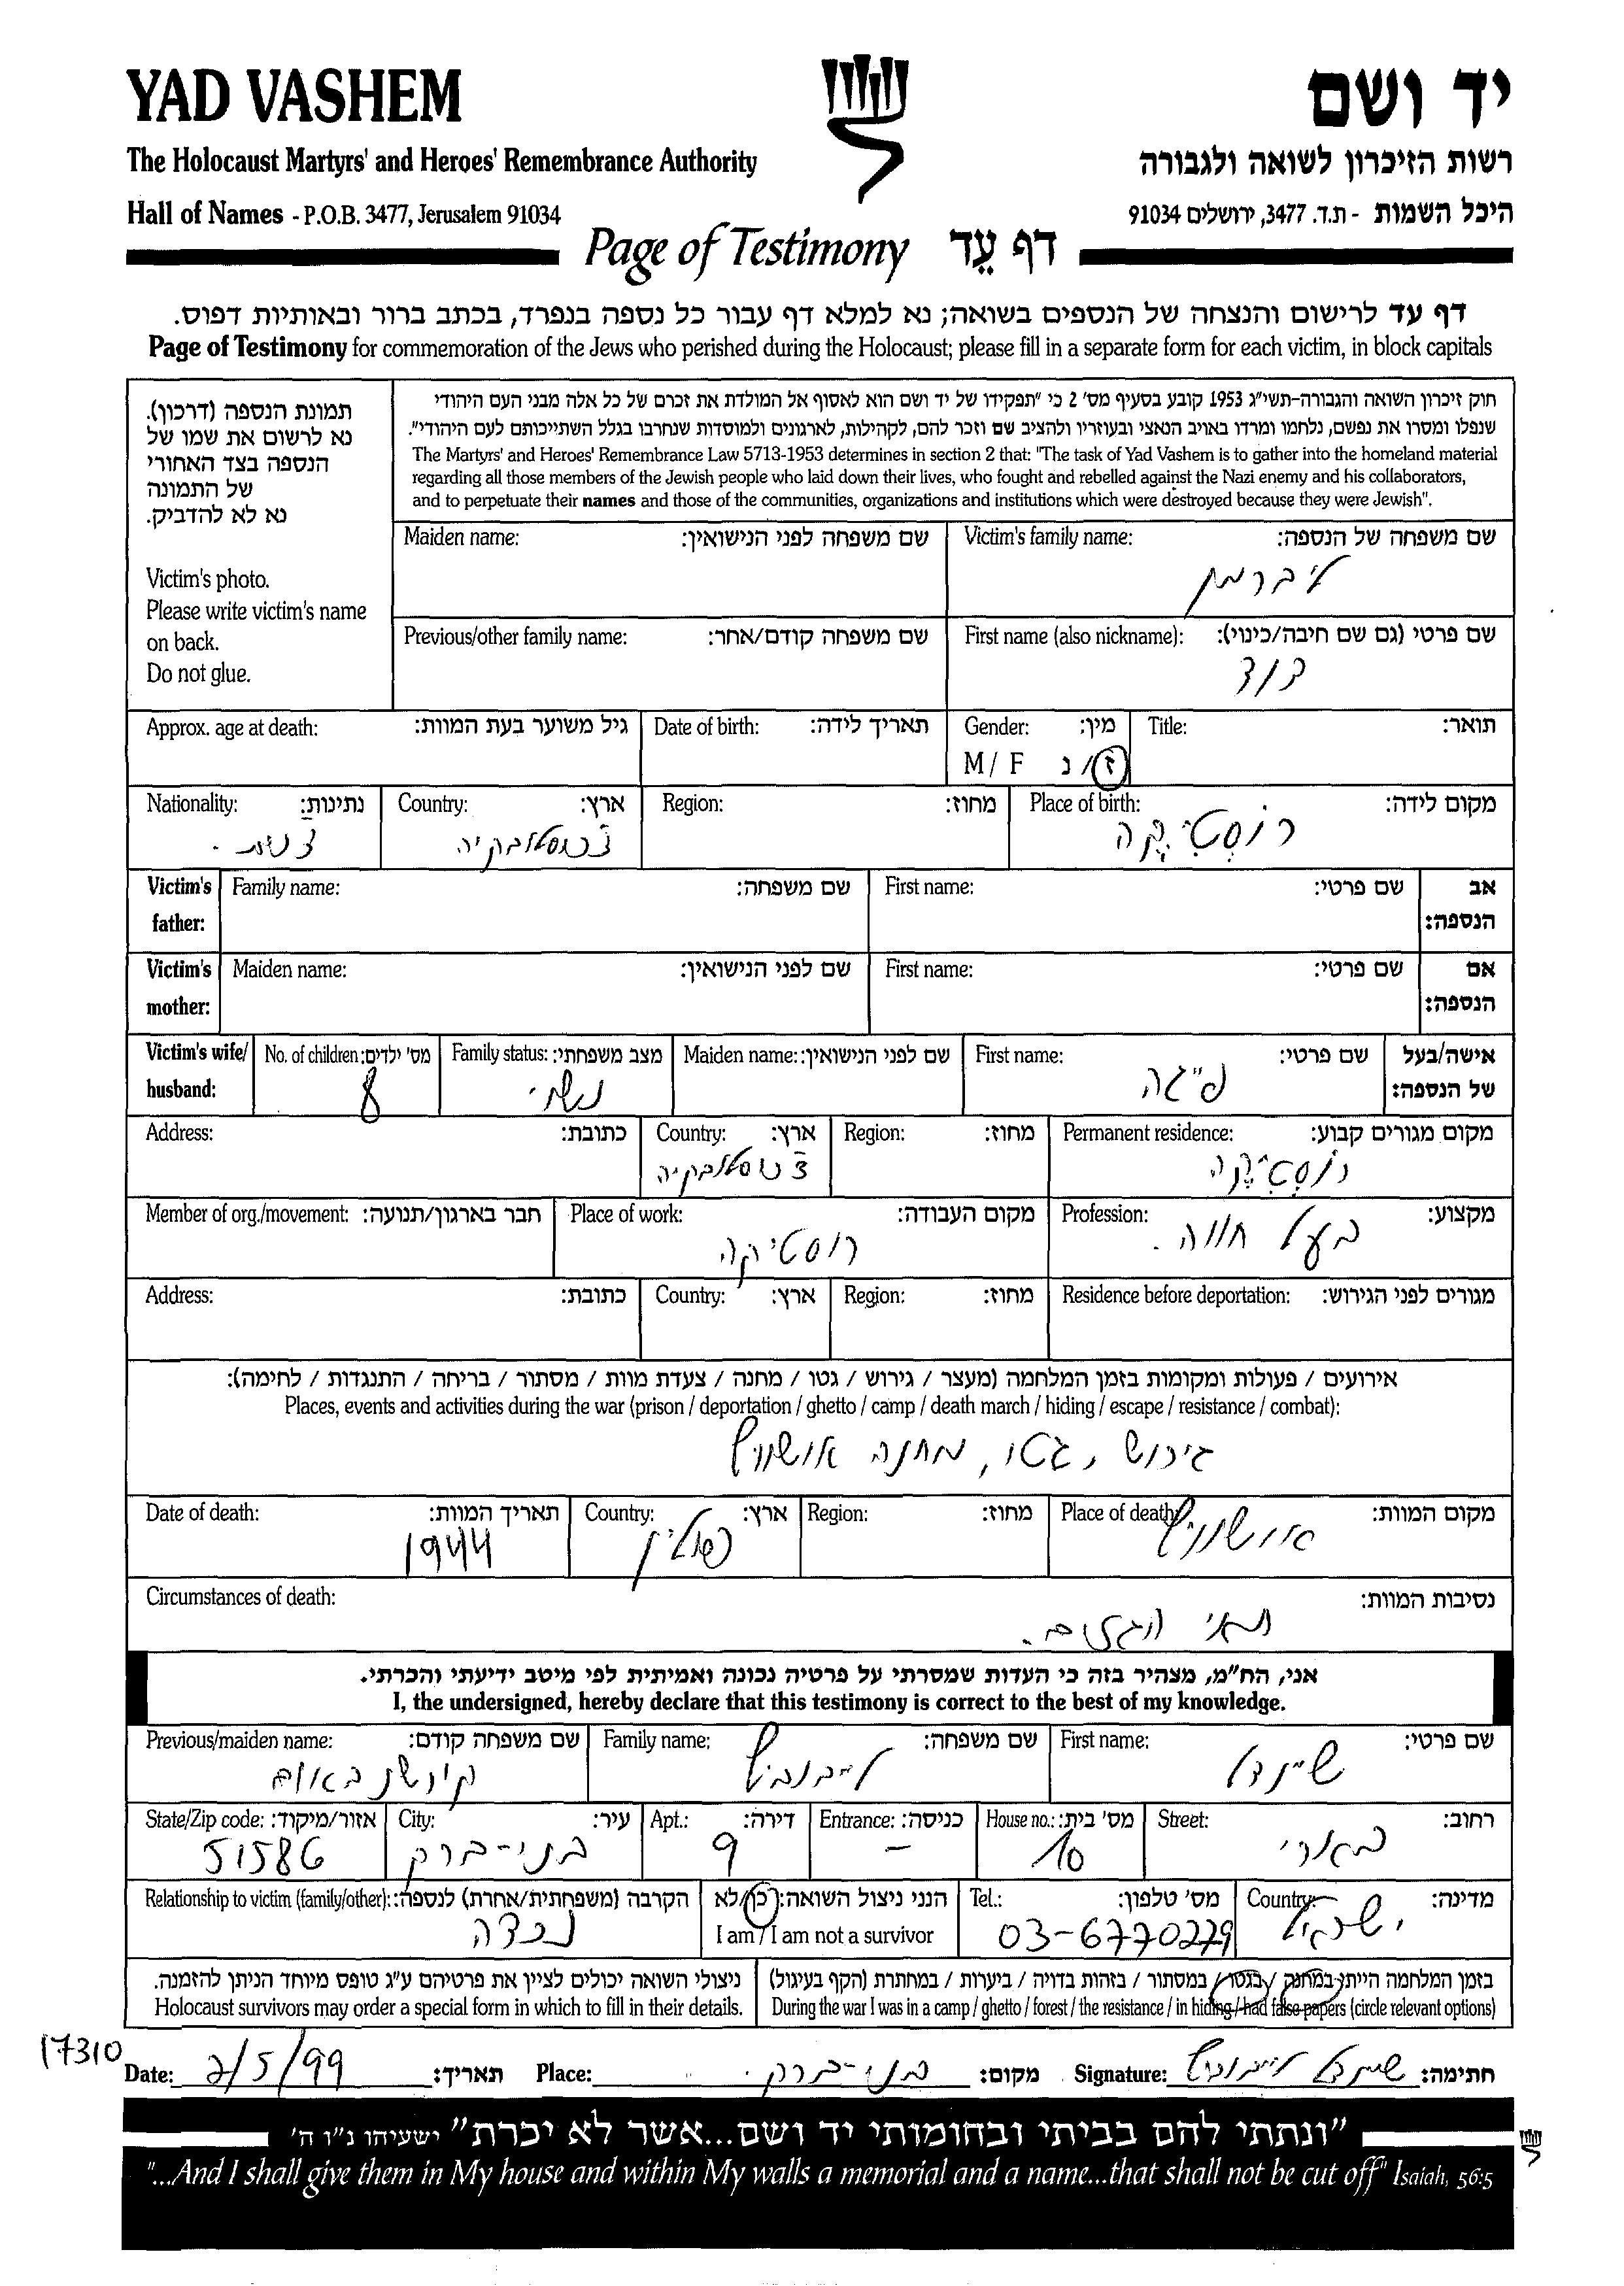 YAD VASHEM
יד ושם
The Holocaust Martyrs' and Heroes' Remembrance Authority
רשות הזיכרון לשואה ולגבורה
Hall of Names - P.O.B. 3477, Jerusalem 91034
היכל השמות - ת.ד. 3477, ירושלים 91034
Page of Testimony דף עֵד
דף עד לרישום והנצחה של הנספים בשואה; נא למלא דף עבור כל נספה בנפרד, בכתב ברור ובאותיות דפוס.
Page of Testimony for commemoration of the Jews who perished during the Holocaust; please fill in a separate form for each victim, in block capitals
תמונת הנספה (דרכון).
נא לרשום את שמו של
הנספה בצד האחורי
של התמונה
נא לא להדביק.
Victim's photo.
Please write victim's name
on back.
Do not glue.
חוק זיכרון השואה והגבורה-תשי"ג 1953 קובע בסעיף מס' 2 כי "תפקידו של יד ושם הוא לאסוף אל המולדת את זכרם של כל אלה מבני העם היהודי
שנפלו ומסרו את נפשם, נלחמו ומרדו באויב הנאצי ובעוזריו ולהציב שם וזכר להם, לקהילות, לארגונים ולמוסדות שנחרבו בגלל השתייכותם לעם היהודי".
The Martyrs' and Heroes' Remembrance Law 5713-1953 determines in section 2 that: "The task of Yad Vashem is to gather into the homeland material
regarding all those members of the Jewish people who laid down their lives, who fought and rebelled against the Nazi enemy and his collaborators,
and to perpetuate their names and those of the communities, organizations and institutions which were destroyed because they were Jewish".
Victim's family name: שם משפחה של הנספה:
ליברמן
Maiden name: שם משפחה לפני הנישואין:
First name (also nickname): שם פרטי (גם שם חיבה/כינוי):
דוד
Previous/other family name: שם משפחה קודם/אחר:
Title: תואר:
Gender: מין:
M / F ז / נ
Date of birth: תאריך לידה:
Approx. age at death: גיל משוער בעת המוות:
Place of birth: מקום לידה:
רוסטיקה
Region: מחוז:
Country: ארץ:
צ'כוסלובקיה
Nationality: נתינות:
אב הנספה: Victim's father:
First name: שם פרטי:
Family name: שם משפחה:
אם הנספה: Victim's mother:
First name: שם פרטי:
Maiden name: שם לפני הנישואין:
אישה/בעל של הנספה: Victim's wife/ husband:
First name: שם פרטי:
פייגה
Maiden name: שם לפני הנישואין:
Family status: מצב משפחתי:
נשוי
No. of children: מס' ילדים:
8
Permanent residence: מקום מגורים קבוע:
רוסטיקה
Region: מחוז:
Country: ארץ:
צ'כוסלובקיה
Address: כתובת:
Profession: מקצוע:
בעל חווה.
Place of work: מקום העבודה:
רוסטיקה
Member of org./movement: חבר בארגון/תנועה:
Residence before deportation: מגורים לפני הגירוש:
Region: מחוז:
Country: ארץ:
Address: כתובת:
אירועים / פעולות ומקומות בזמן המלחמה (מעצר / גירוש / גטו / מחנה / צעדת מוות / מסתור / בריחה / התנגדות / לחימה):
Places, events and activities during the war (prison / deportation / ghetto / camp / death march / hiding / escape / resistance / combat):
גירוש, גטו, מחנה אושוויץ
Place of death: מקום המוות:
אושוויץ
Region: מחוז:
Country: ארץ:
פולין
Date of death: תאריך המוות:
1944
Circumstances of death: נסיבות המוות:
תאי הגזים.
אני, הח"מ, מצהיר בזה כי העדות שמסרתי על פרטיה נכונה ואמיתית לפי מיטב ידיעתי והכרתי.
I, the undersigned, hereby declare that this testimony is correct to the best of my knowledge.
First name: שם פרטי:
שיינדל
Family name: שם משפחה:
לייבוביץ
Previous/maiden name: שם משפחה קודם:
קירשנבאום
Street: רחוב:
בארי
House no.: מס' בית:
10
Entrance: כניסה:
–
Apt.: דירה:
9
City: עיר:
בני-ברק
State/Zip code: אזור/מיקוד:
51586
Country: מדינה:
ישראל
Tel.: מס' טלפון:
03-6770279
הנני ניצול השואה: כן/לא
I am / I am not a survivor
Relationship to victim (family/other): הקרבה (משפחתית/אחרת) לנספה:
נכדה
בזמן המלחמה הייתי במחנה / בגטו / במסתור / בזהות בדויה / ביערות / במחתרת (הקף בעיגול)
During the war I was in a camp / ghetto / forest / the resistance / in hiding / had false papers (circle relevant options)
ניצולי השואה יכולים לציין את פרטיהם ע"ג טופס מיוחד הניתן להזמנה.
Holocaust survivors may order a special form in which to fill in their details.
17310
Date: 2/5/99 תאריך:
Place: בני-ברק. מקום:
Signature: שיינדל לייבוביץ חתימה:
"ונתתי להם בביתי ובחומותי יד ושם...אשר לא יכרת" ישעיהו נ"ו ה'
"...And I shall give them in My house and within My walls a memorial and a name...that shall not be cut off" Isaiah, 56:5